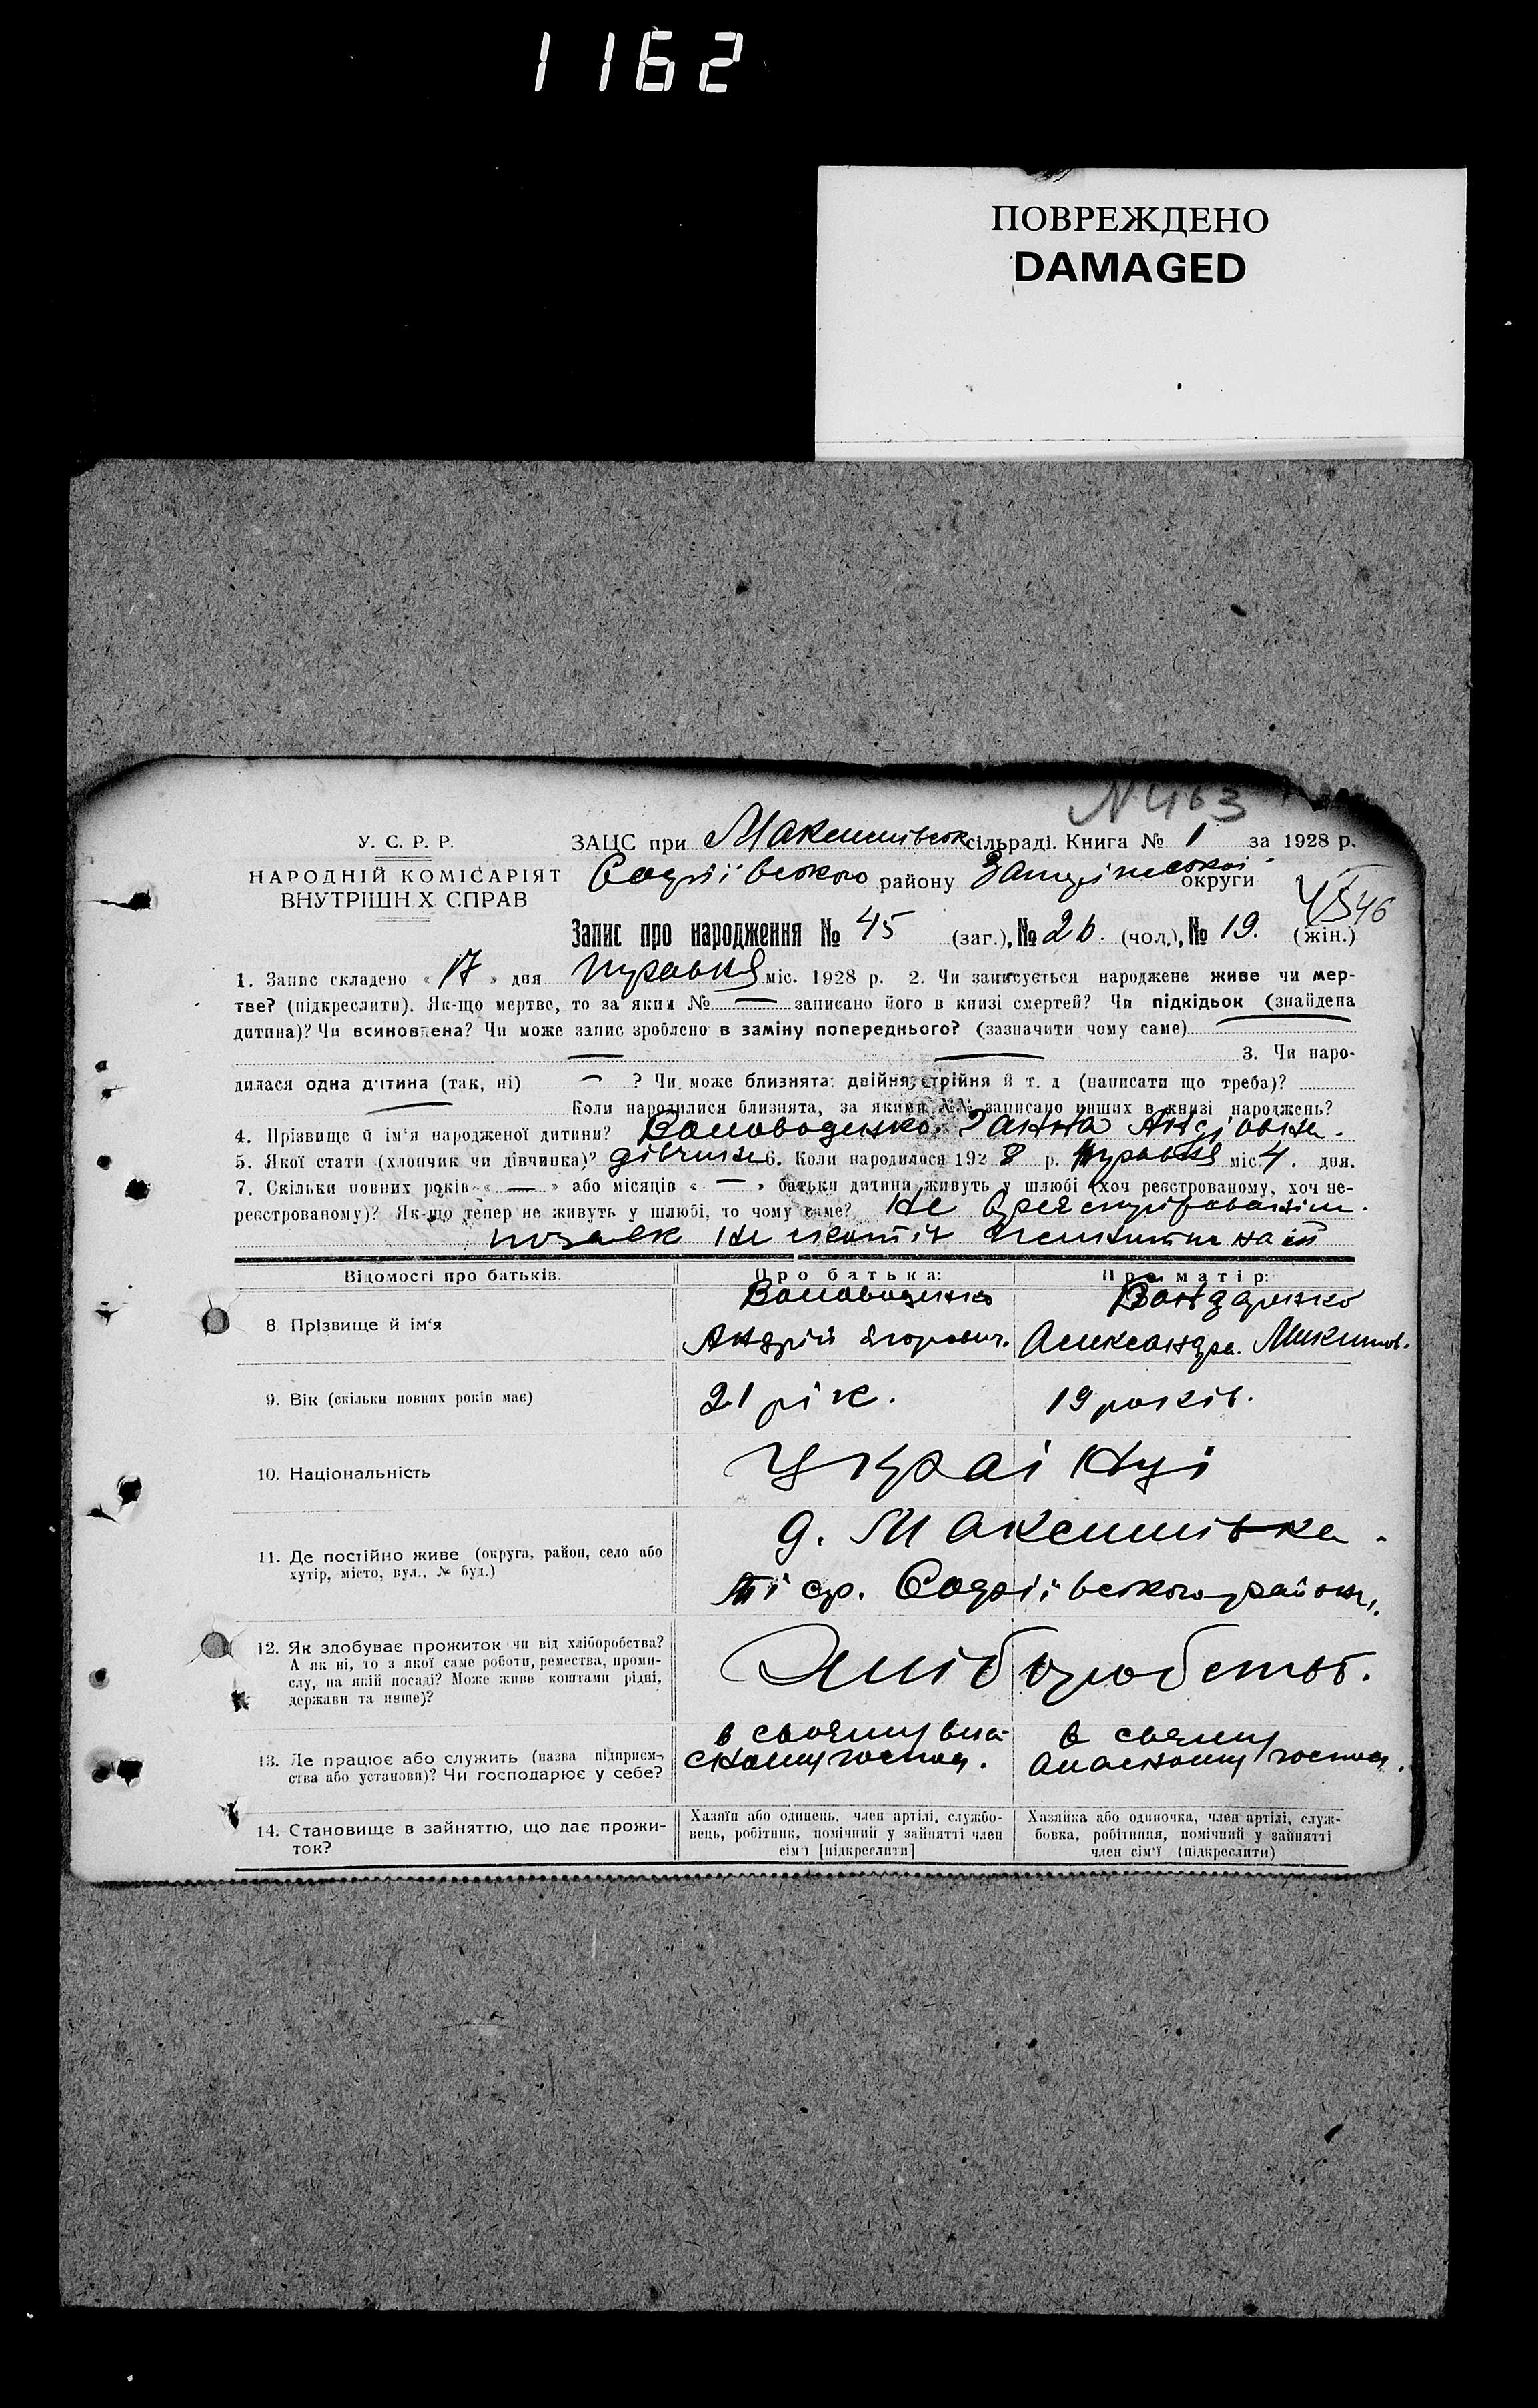 1162
ПОВРЕЖДЕНО
DAMAGED
N 463
У. С. Р. Р.
НАРОДНІЙ КОМІСАРІЯТ
ВНУТРІШН Х СПРАВ
ЗАЦС при Максимівськ сільраді. Книга № 1 за 1928 р.
району округи
Запис про народження № 45 (заг.), № 26. (чол.), № 19. (жін.)
1. Запис складено « 17 » дня міс. 1928 р. 2. Чи записується народжене живе чи мер-
тве? (підкреслити). Як-що мертве, то за яким № — записано його в книзі смертей? Чи підкідьок (знайдена
дитина)? Чи всиновлена? Чи може запис зроблено в заміну попереднього? (зазначити чому саме)
3. Чи наро-
дилася одна дитина (так, ні) — ? Чи може близнята: двійня, трійня й т. д (написати що треба)?
Коли народилися близнята, за якими №№ записано инших в книзі народжень?
4. Прізвище й ім'я народженої дитини? Воловоденко Ганна
5. Якої стати (хлопчик чи дівчинка)? дівчина 6. Коли народилося 192 8 р. міс 4. дня.
7. Скільки повних років « — » або місяців « — » батьки дитини живуть у шлюбі (хоч реєстрованому, хоч не-
реєстрованому)? Як-що тепер не живуть у шлюбі, то чому саме? не
Відомості про батьків. Про батька: Про матір:
8. Прізвище й ім'я
Воловоденко
Андрій Єгорович.
Бондаренко
Александра Микитов.
9. Вік (скільки повних років має) 21 рік. 19 років.
10. Національність Українці
11. Де постійно живе (округа, район, село або
хутір, місто, вул., № буд.)
д. Максимівка
району.
12. Як здобуває прожиток чи від хліборобства?
А як ні, то з якої саме роботи, ремества, проми-
слу, на якій посаді? Може живе коштами рідні,
держави та инше)?
Хліборобств.
13. Де працює або служить (назва підприєм-
ства або установи)? Чи господарює у себе?
в своєму вла-
сному господ.
в своєму
власному господ.
14. Становище в зайняттю, що дає прожи-
ток?
Хазяїн або одинець, член артілі, службо-
вець, робітник, помічний у зайнятті член
сім'ї [підкреслити]
Хазяйка або одиночка, член артілі, служ-
бовка, робітниця, помічний у зайнятті
член сім'ї (підкреслити)